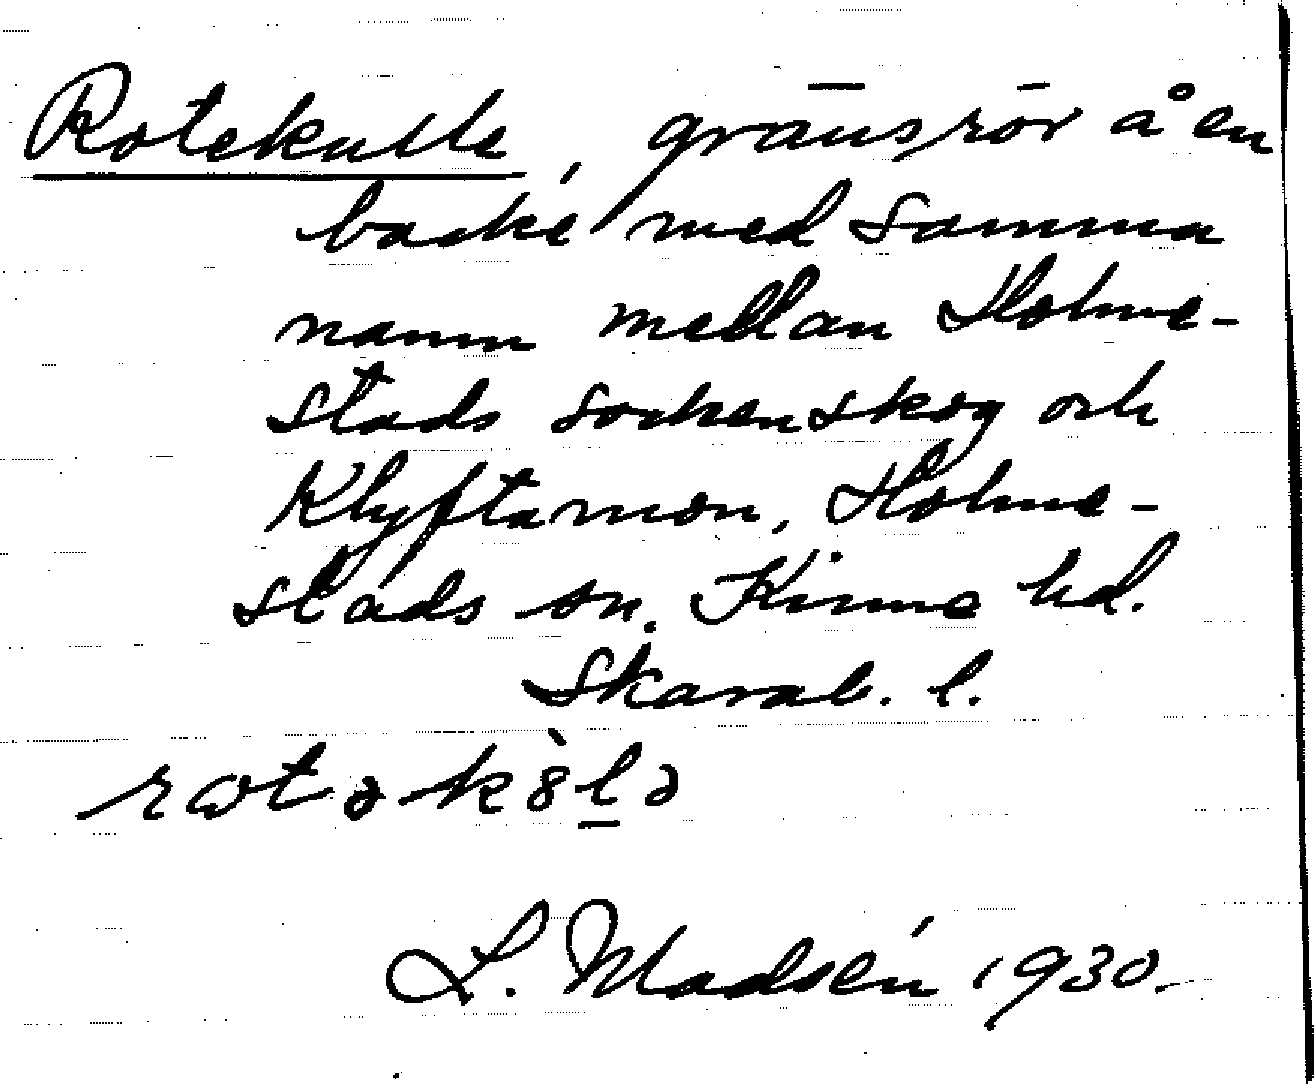 Rotekulle, gränsrör å en
backe med samma
namn mellan Holme-
stads sockenskog och
Klyftamon, Holme-
stads sn. Kinne hd.
Skarab. l.
L. Madsén 1930.